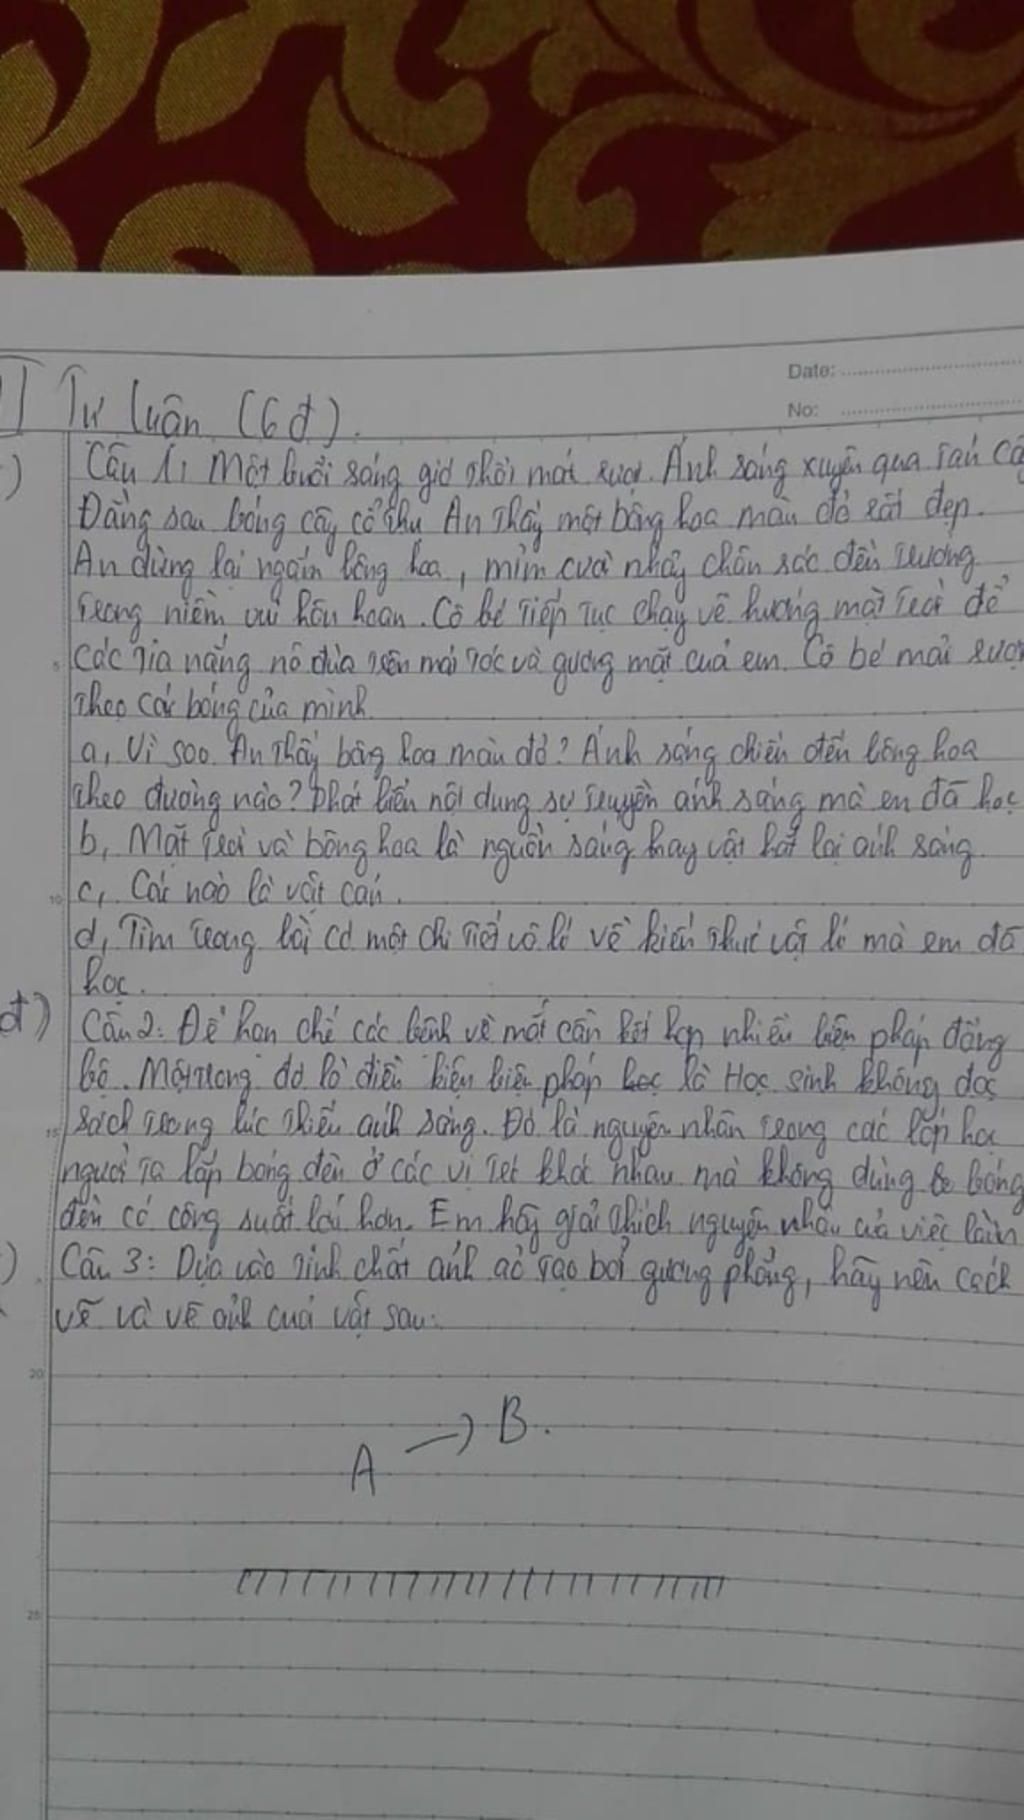 Date:
No:
Tự luận (6đ).
Câu 1: Một buổi sáng gió thổi mát rượi. Ánh sáng xuyên qua tán câ
Đằng sau bóng cây cổ thụ An thấy một bông hoa màu đỏ rất đẹp.
An dừng lại ngắm bông hoa, mỉm cười nhảy chân sáo đến trường
trong niềm vui hân hoan. Cô bé tiếp tục chạy về hướng mặt trời để
các tia nắng nô đùa trên mái tóc và gương mặt của em. Cô bé mải rượ
theo cái bóng của mình.
a, Vì sao An thấy bông hoa màu đỏ? Ánh sáng chiếu đến bông hoa
theo đường nào? Phát biểu nội dung sự truyền ánh sáng mà em đã học
b, Mặt trời và bông hoa là nguồn sáng hay vật hắt lại ánh sáng.
c, Cái nào là vật cản.
d, Tìm trong bài có một chi tiết vô lí về kiến thức vật lí mà em đã
học.
đ)
Câu 2: Để hạn chế các bệnh về mắt cần kết hợp nhiều biện pháp đồng
bộ. Một trong đó là điều kiện biện pháp là Học sinh không đọc
sách trong lúc thiếu ánh sáng. Đó là nguyên nhân trong các lớp học
người ta lắp bóng đèn ở các vị trí khác nhau mà không dùng bóng
đèn có công suất lớn hơn. Em hãy giải thích nguyên nhân của việc làm
Câu 3: Dựa vào tính chất ảnh ảo tạo bởi gương phẳng, hãy nên cách
vẽ và vẽ ảnh của vật sau:
A B.
5
10
15
20
25